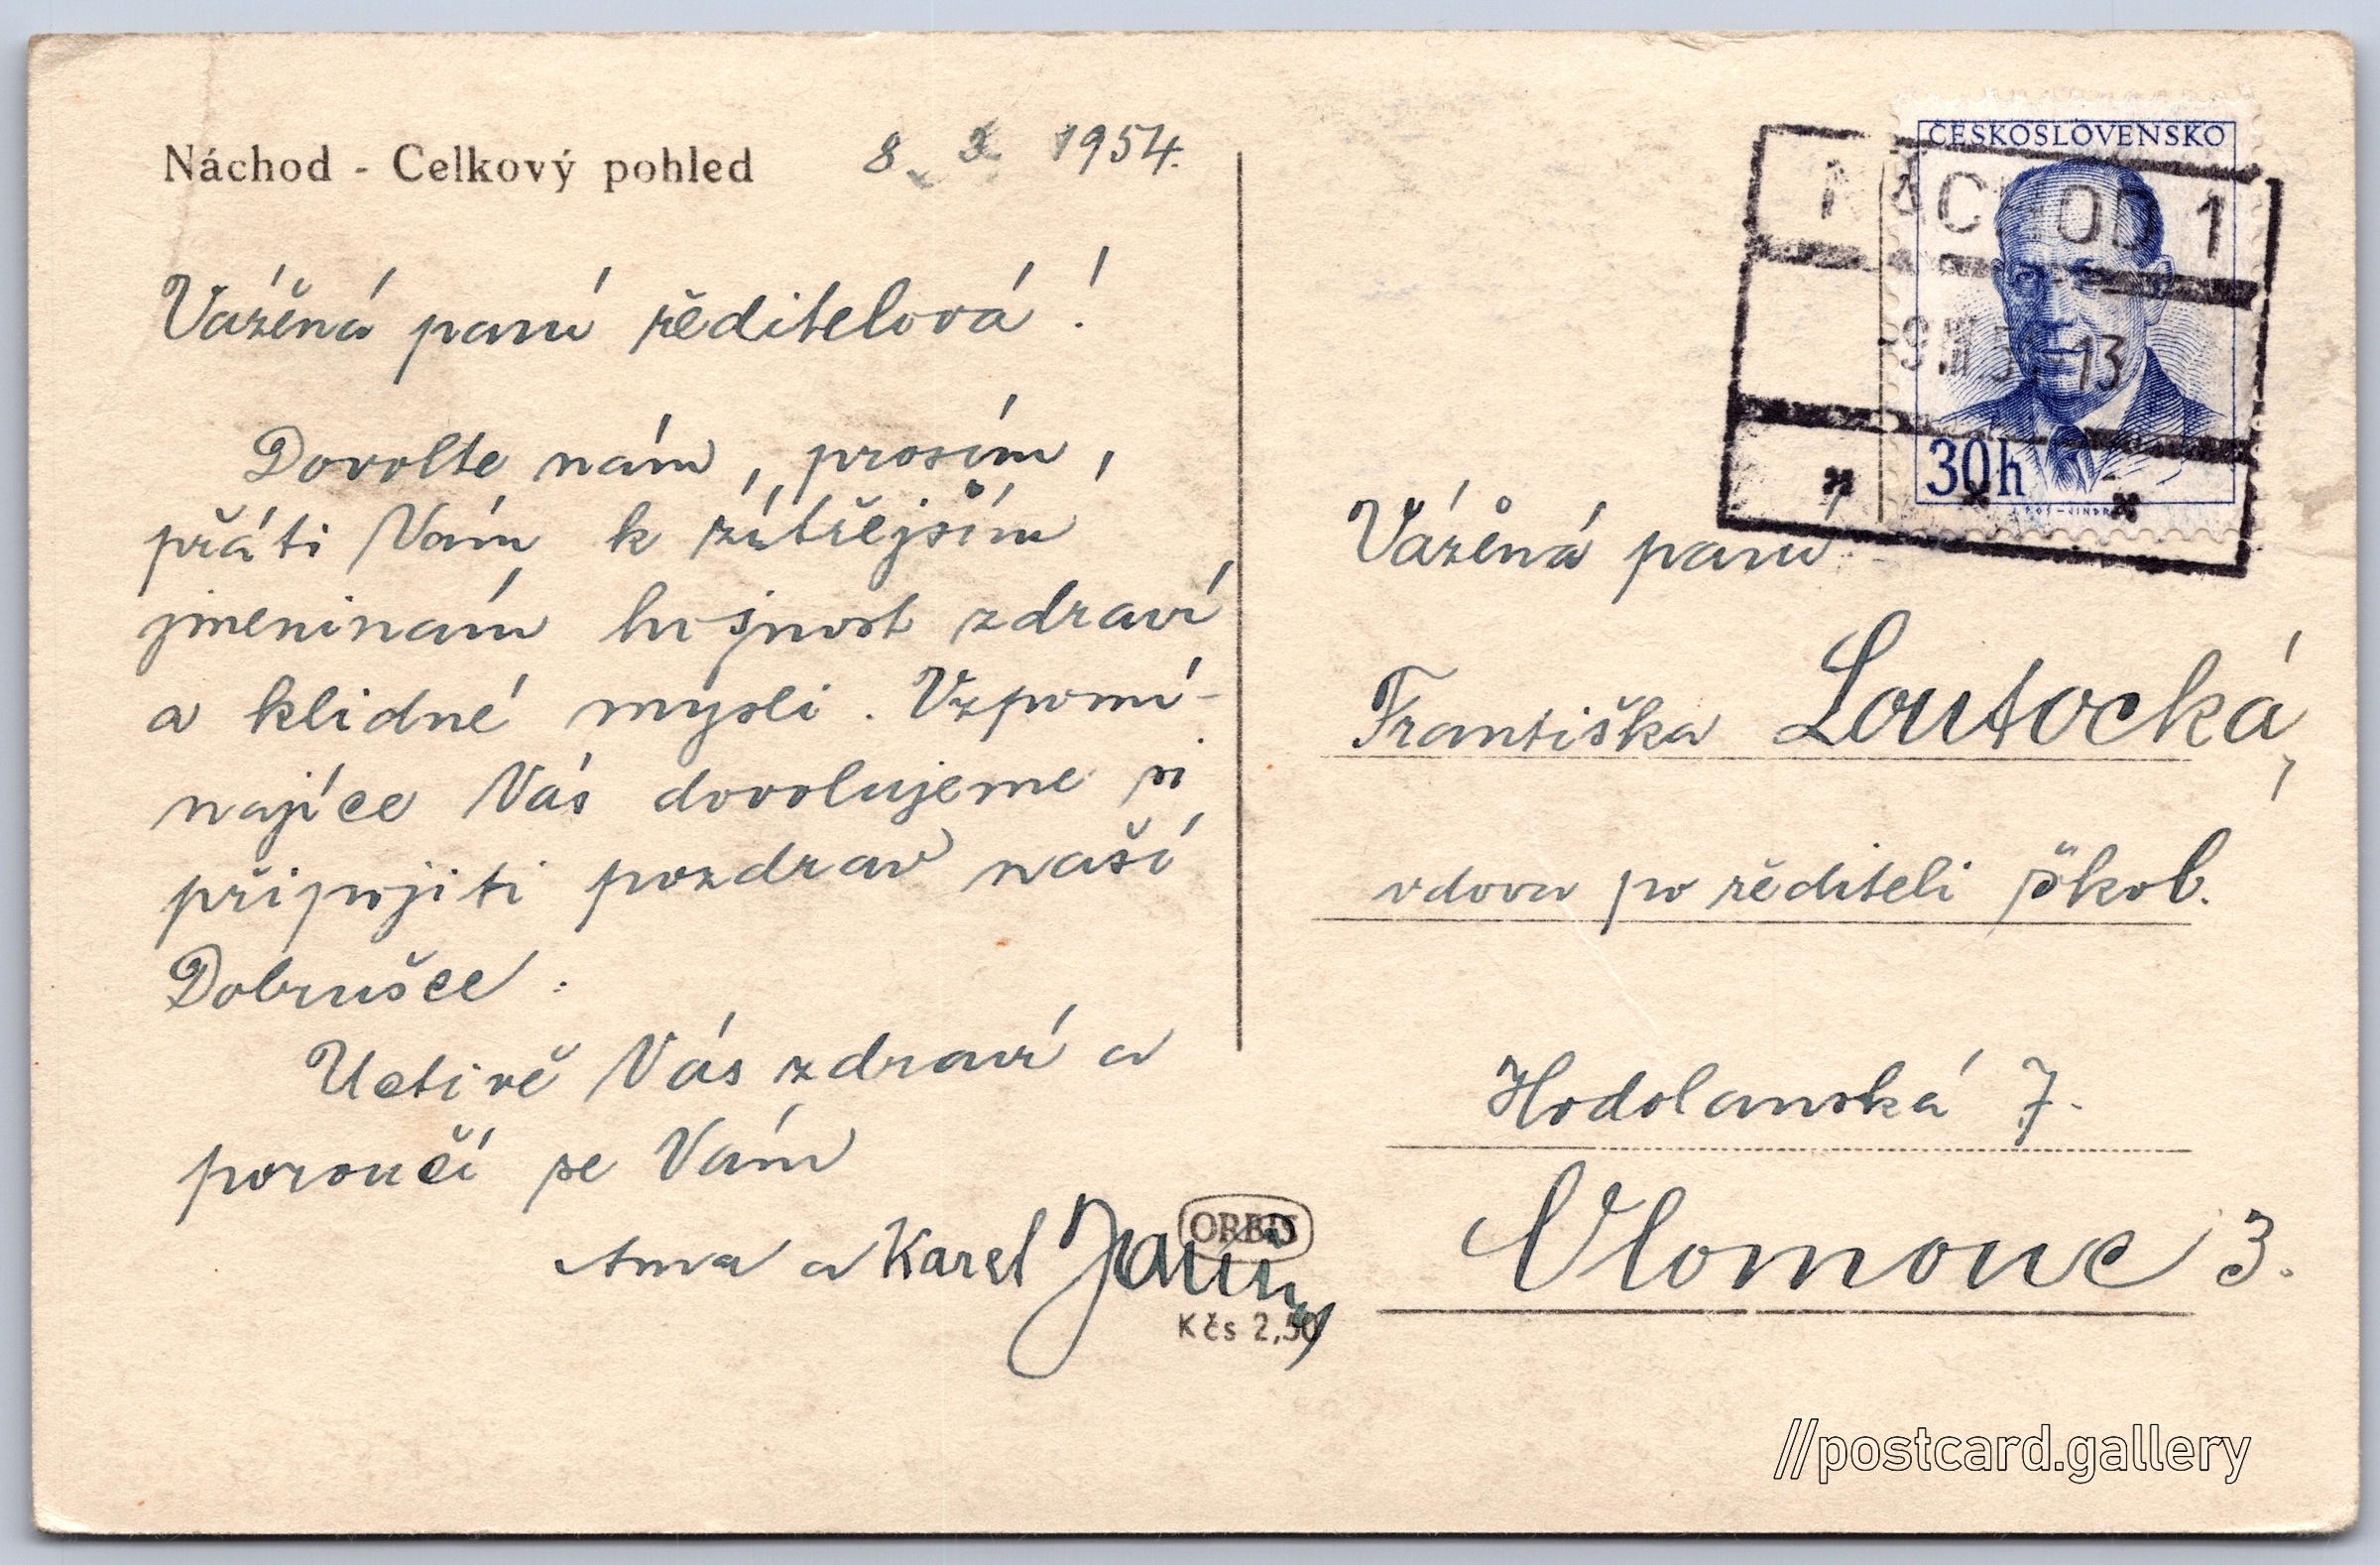 Náchod - Celkový pohled
8. 3. 1954.
Vážená paní ředitelová!
Dovolte nám, prosím,
přáti Vám k zítřejším
jmeninám hojnost zdraví
a klidné mysli. Vzpomí-
najíce Vás dovolujeme si
připojiti pozdrav naší
Dobrušce.
Uctivě Vás zdraví a
poroučí se Vám
Anna a Karel
ORBIS
Kčs 2,50
ČESKOSLOVENSKO
NÁCHOD 1
30h
Vážená paní
Františka Loutocká,
vdova po řediteli škol.
Hodolanská 7.
Olomouc 3.
//postcard.gallery